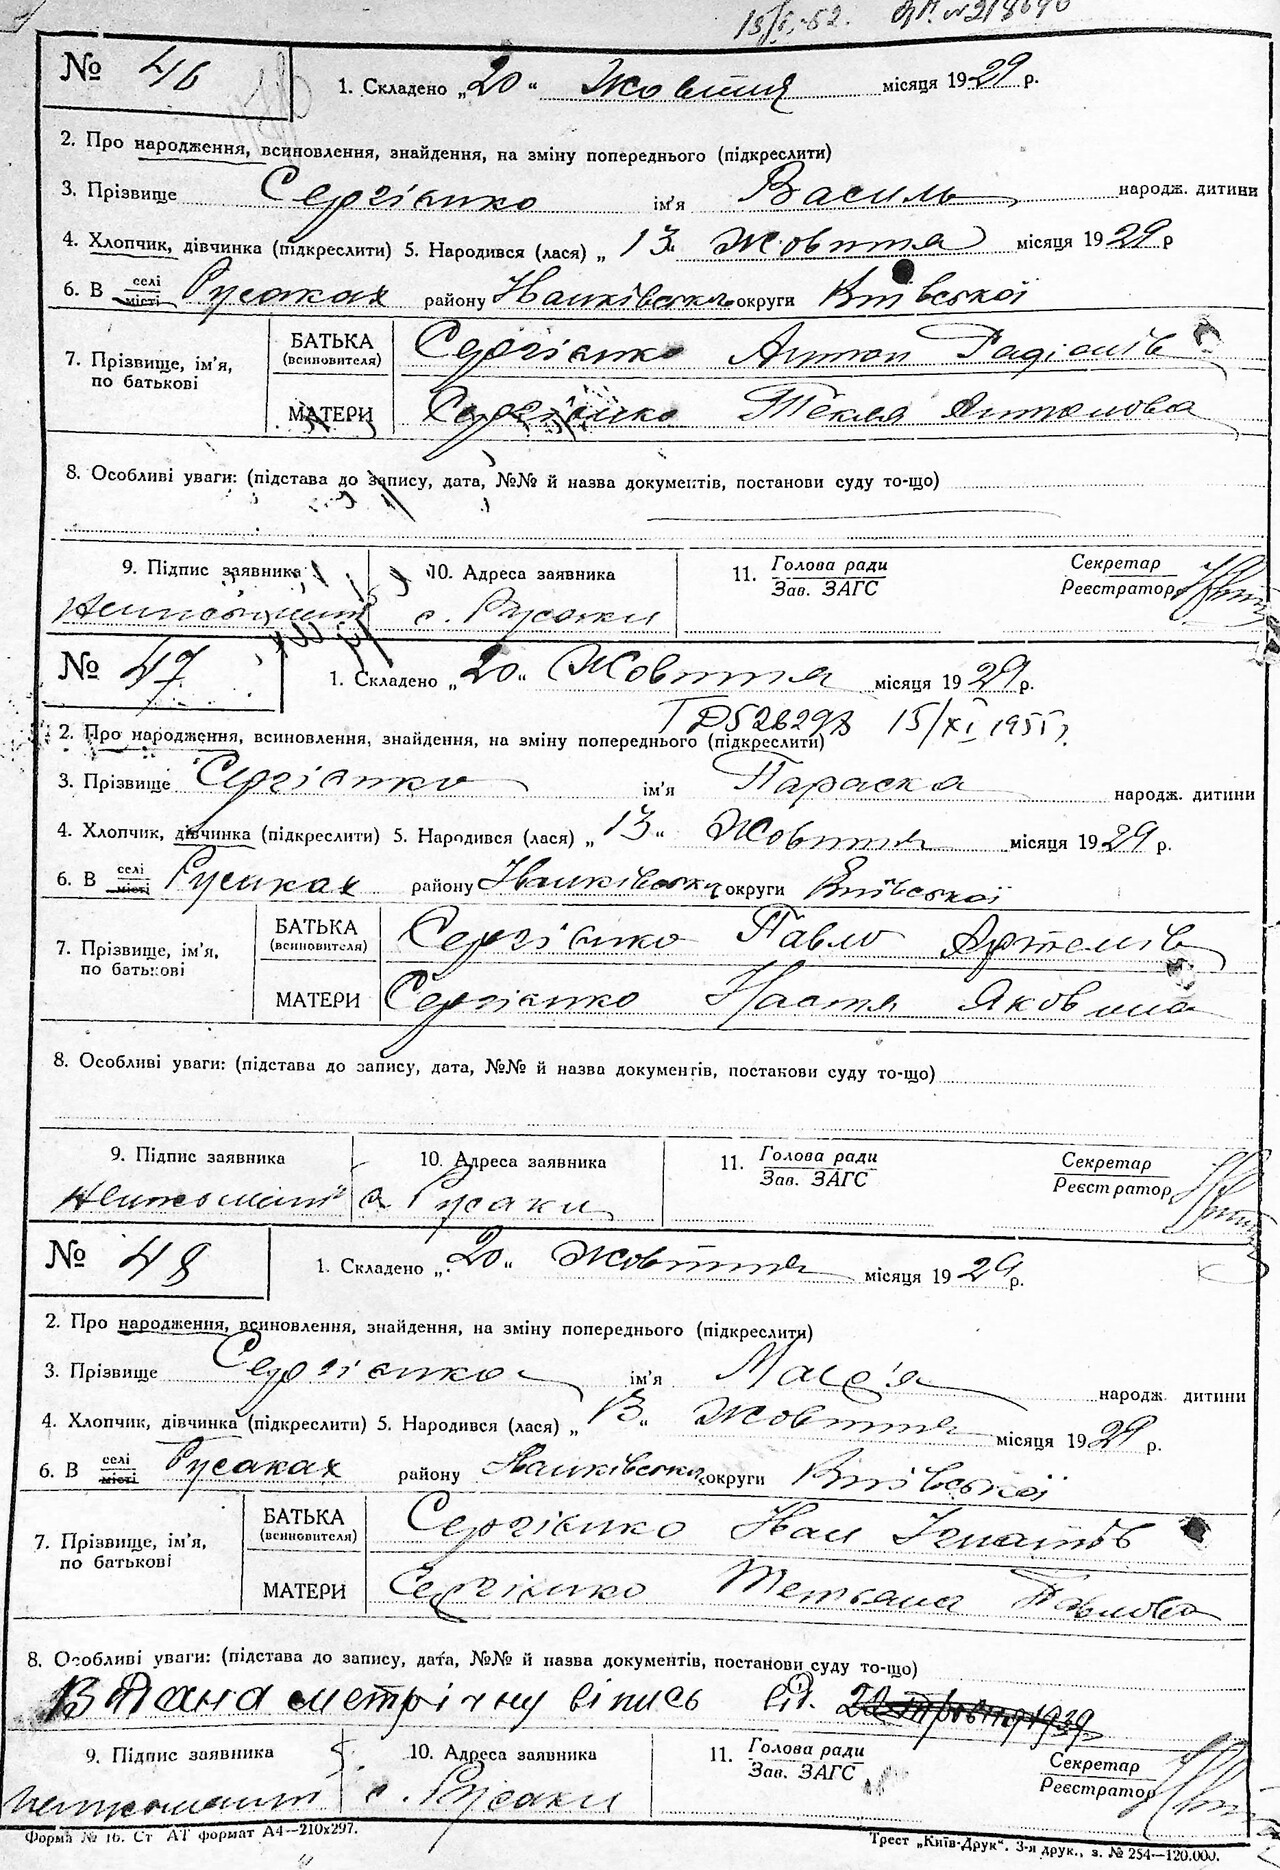 № 46
1. Складено „20“ Жовтня місяця 1929 р.
2. Про народження, всиновлення, знайдення, на зміну попереднього (підкреслити)
3. Прізвище Сергієнко ім'я Василь народж. дитини
4. Хлопчик, дівчинка (підкреслити) 5. Народився (лася) „13“ Жовтня місяця 1929 р
6. В селі місті Русаках району округи Київської
7. Прізвище, ім'я, по батькові
БАТЬКА (всиновителя) Сергієнко Антон Радіонів
МАТЕРИ Сергієнко Текля Антонова
8. Особливі уваги: (підстава до запису, дата, №№ й назва документів, постанови суду то-що)
9. Підпис заявника 10. Адреса заявника 11. Голова ради Зав. ЗАГС Секретар Реєстратор
с. Русаки
№ 47
1. Складено „20“ Жовтня місяця 1929 р.
15/XI 1955 г.
2. Про народження, всиновлення, знайдення, на зміну попереднього (підкреслити)
3. Прізвище Сергієнко ім'я Параска народж. дитини
4. Хлопчик, дівчинка (підкреслити) 5. Народився (лася) „13“ Жовтня місяця 1929 р.
6. В селі місті Русаках району округи Київської
7. Прізвище, ім'я, по батькові
БАТЬКА (всиновителя) Сергієнко Павло Артемів
МАТЕРИ Сергієнко Настя Яковина
8. Особливі уваги: (підстава до запису, дата, №№ й назва документів, постанови суду то-що)
9. Підпис заявника 10. Адреса заявника 11. Голова ради Зав. ЗАГС Секретар Реєстратор
с. Русаки
№ 48
1. Складено „20“ Жовтня місяця 1929 р.
2. Про народження, всиновлення, знайдення, на зміну попереднього (підкреслити)
3. Прізвище Сергієнко ім'я народж. дитини
4. Хлопчик, дівчинка (підкреслити) 5. Народився (лася) „13“ Жовтня місяця 1929 р.
6. В селі місті Русаках району округи Київської
7. Прізвище, ім'я, по батькові
БАТЬКА (всиновителя) Сергієнко Ігнатів
МАТЕРИ Сергієнко Тетьяна Павлова
8. Особливі уваги: (підстава до запису, дата, №№ й назва документів, постанови суду то-що)
Видана метрічну віпись від 20 травня 1939
9. Підпис заявника 10. Адреса заявника 11. Голова ради Зав. ЗАГС Секретар Реєстратор
с. Русаки
Форма № 16. Ст АТ формат А4—210х297.
Трест „Київ-Друк“. 3-я друк., з. № 254—120.000.